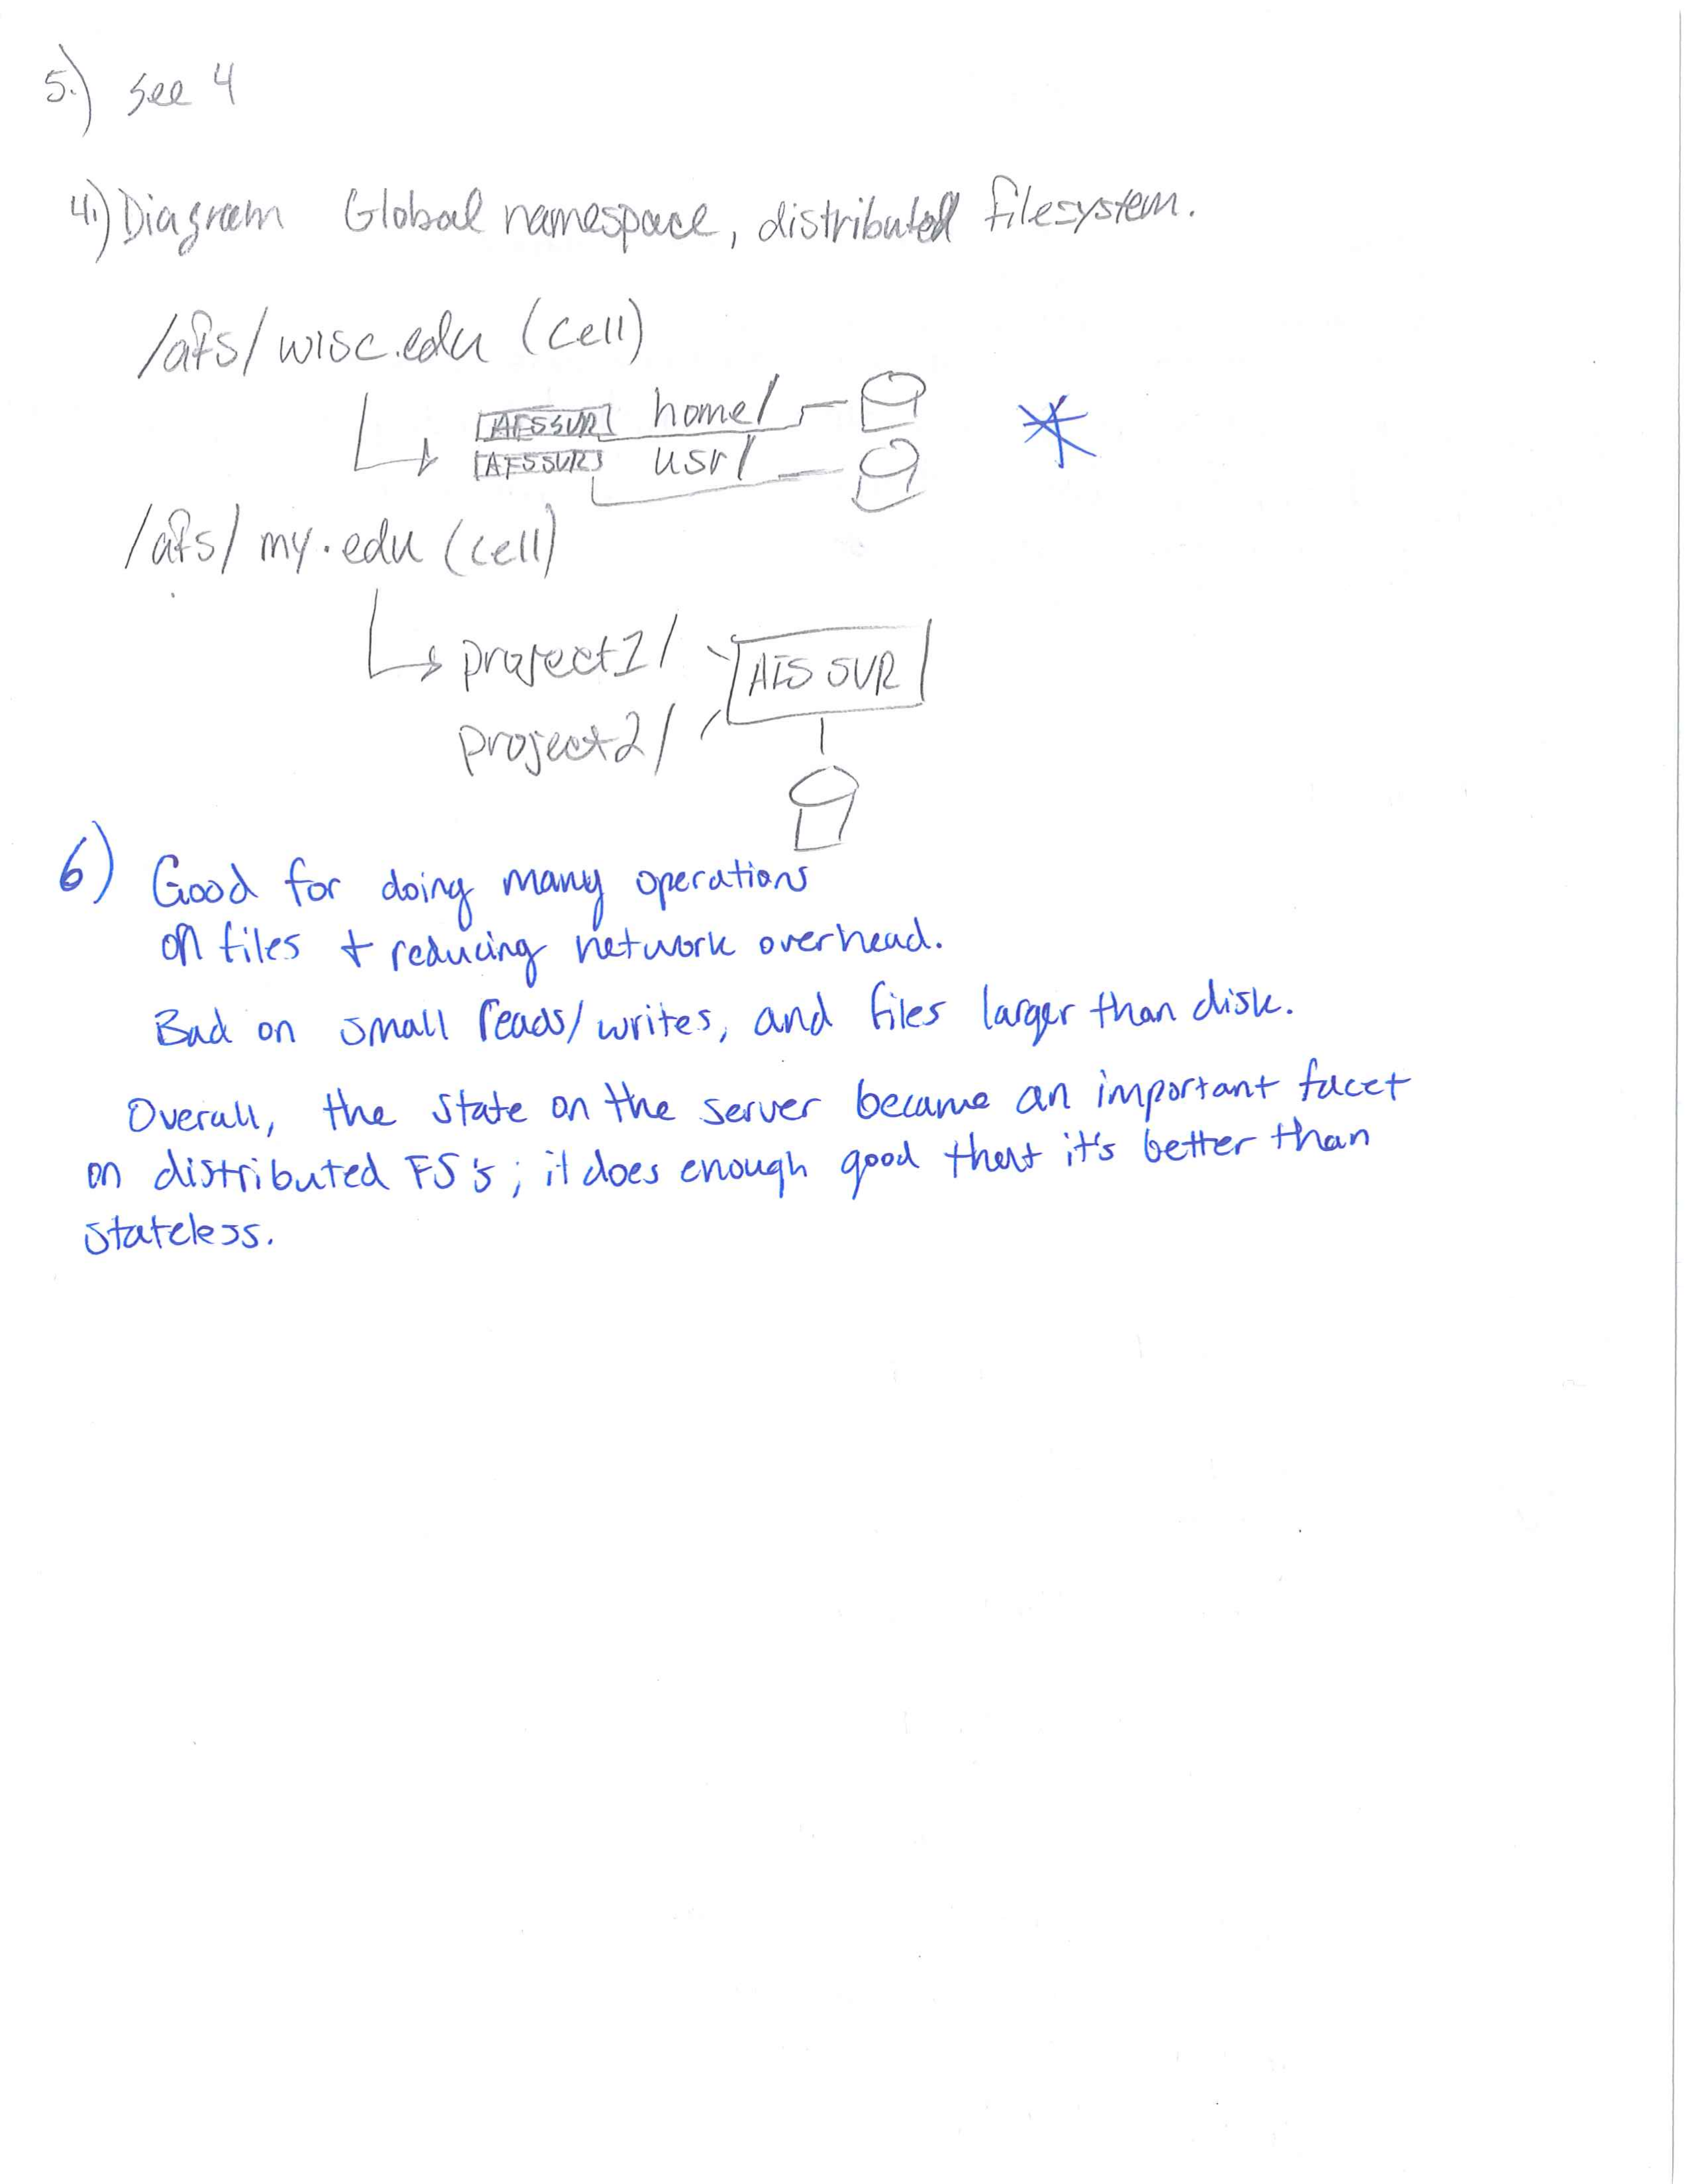 5.) see 4
4.) Diagram Global namespace, distributed filesystem.
/afs/wisc.edu (cell)
AFSSVR home/
AFSSVR usr/
/afs/my.edu (cell)
project1/
AFS SVR
project2/
6) Good for doing many operations
on files + reducing network overhead.
Bad on small reads/writes, and files larger than disk.
Overall, the state on the server became an important facet
on distributed FS's; it does enough good that it's better than
stateless.